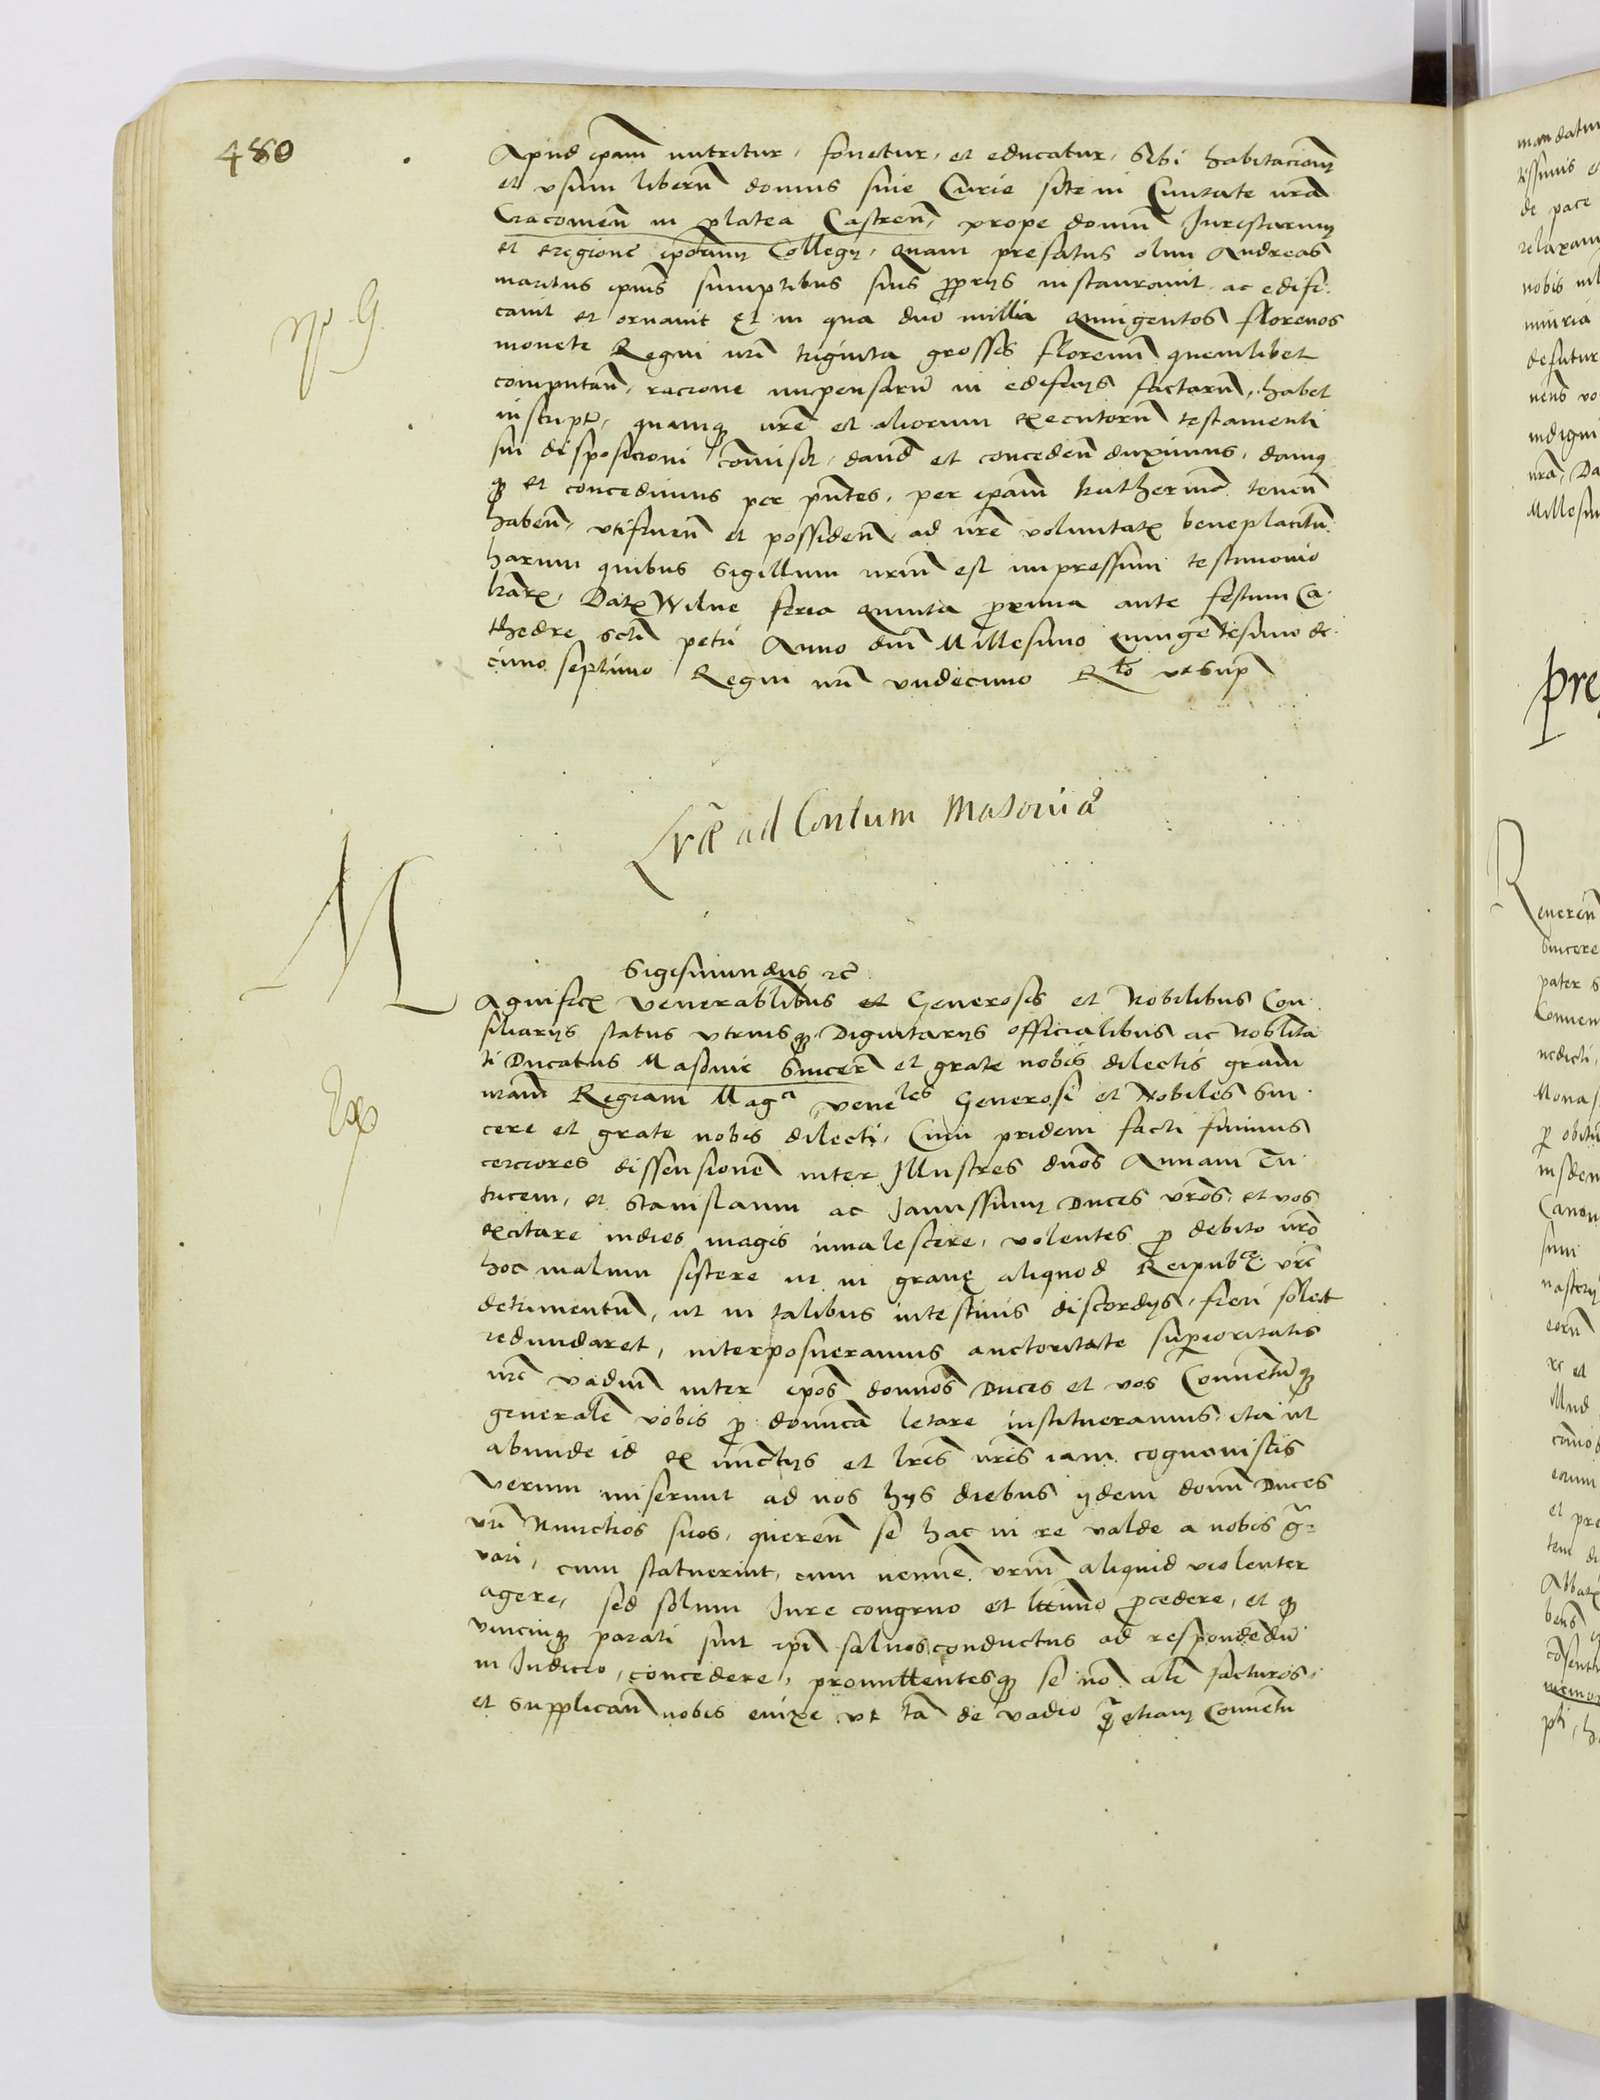 480
Apud ip̄am nutritur, fouetur, et educatur, Sibi habitacionem
et vsum liberū domus siue Curie site in Ciuitate n̄ra
Cracouien̄ in platea Castren̄, prope domū Juristarum
et eregione ip̄orum Collegij, quam prefatus olim Andreas
maritus ip̄ius sumptibus suis proprijs instaurauit ac edifi-
cauit et ornauit Et in qua duo millia quingentos florenos
monete Regni n̄ri triginta grossis florenum quemlibet
computan̄, racione impensarū in edificijs factarū, habet
inscript, quamq n̄re et aliorum executorū testamenti
sui disposicioni comisit, dand et conceden̄ duximus, damus
q et concedimus per pn̄tes, per ip̄am Katherinā tenen̄
haben̄, vtifruen̄ et possiden̄ ad n̄re voluntatis beneplacitū
harum quibus Sigillum n̄rm̄ est impressum testimonio
l̄rarum, Datum Wilne feria quinta proxima ante festum Ca-
thedre scti petri Anno dn̄i Millesimo quingētesimo de-
cimo septimo Regni n̄ri vndecimo Rto vt sup
L̄ræ ad Conuentum Masouiæ
Sigismundus etc
Magnificis Venerabilibus et Generosis et Nobilibus Con-
siliarijs status vtriusq Dignitarijs officialibus ac Nobilita-
ti Ducatus Masouie Sincer̄ et grate nobis dilectis gram
n̄ram Regiam Magci veneles Generosi et Nobiles sin-
cere et grate nobis dilecti, Cum pridem facti fuimus
cerciores dissensionem inter Illustres dn̄os Annam Tu-
tricem, et Stanislaum ac Janussium Duces v̄ros, et vos
excitare indies magis inualescere, volentes pro debito n̄ro
hoc malum sistere ne in graue aliquod Reipubce v̄re
detrimentū, ut in talibus intestinis discordijs, fieri solet
redundaret, interposueramus auctoritate superioritatis
n̄re vadium inter ip̄os domnos Duces et vos Conuentūq
generalem vobis pro dominca letare institueramus, ita ut
abunde id ex nunctijs et l̄ris n̄ris iam cognouistis
Verum miserunt ad nos hijs diebus ijdem domni Duces
v̄ri Nunctios suos, queren̄ se hac in re valde a nobis gra-
vari, cum statuerint, cum nemine v̄rum aliquid violenter
agere, sed solum Jure congruo et littimo procedere, et q
vnicuiq parati sint ip̄i saluos conductus ad respondēdū
in Judicio, concedere, promittentesq se nō alr facturos,
et supplican̄ nobis enixe vt tā de vadio q etiam Conuentu